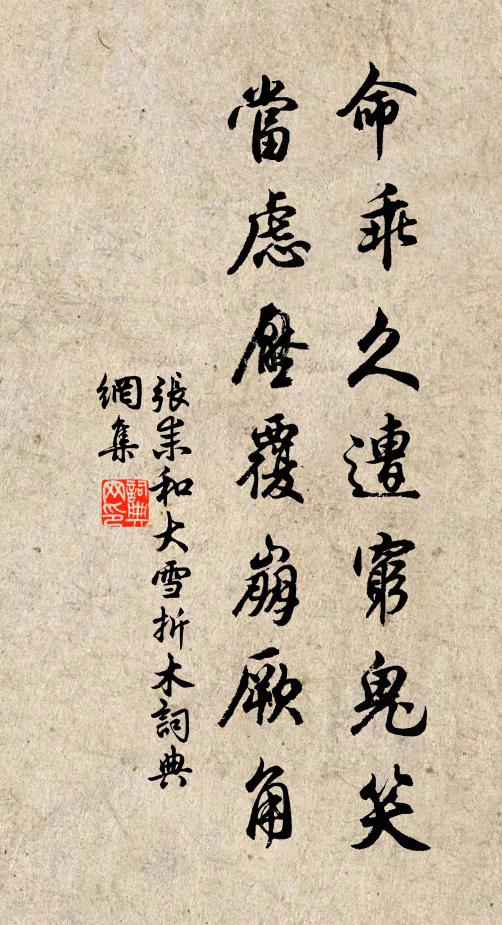 命乖久遭窮鬼笑
當慮壓覆崩厥角
張耒和大雪折木詞典
網集
詞典
网印